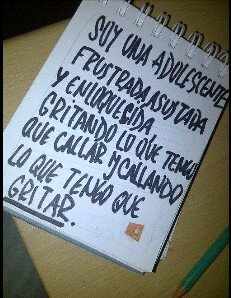 SOY UNA ADOLESCENTE
FRUSTRADA ASUSTADA
Y ENLOQUECIDA
GRITANDO LO QUE TENGO
QUE CALLAR Y CALLANDO
LO QUE TENGO QUE
GRITAR.